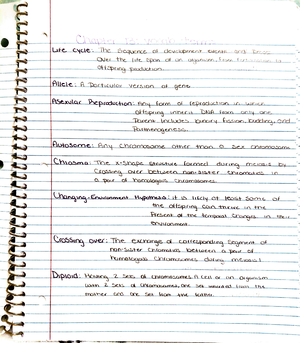 Life Cycle: The sequence of development events and
Over the life span of an organism from
offspring production.
Allele: A Particular version of gene
Asexual Reproduction: Any form of reproduction in which
offspring inherit DNA from only one
Parent. Includes binary fission, budding, and
Parthenogenesis.
Autosome: Any chromosome other than a sex chromosome
Chiasma: The x-shape structure formed during meiosis by
crossing over between non-sister chromatids in
a pair of homologous chromosomes.
Changing-Environment Hypothesis: it is likely at least some of
the offspring can thrive in the
Present of the temporal changes in their
environment.
Crossing over: The exchange of corresponding segment of
non-sister chromatids between a pair of
homologous chromosomes during meiosis I
Diploid: Having 2 sets of chromosomes A cell or an organism
with 2 sets of chromosomes, one set inherited from the
mother and one set from the father.